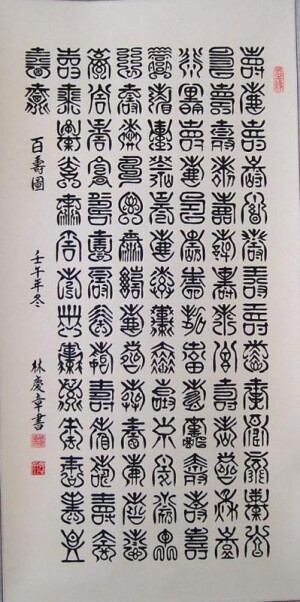 壽壽壽壽壽壽壽壽壽壽壽壽壽壽
壽壽壽壽壽壽壽壽壽壽壽壽壽壽
壽壽壽壽壽壽壽壽壽壽壽壽壽壽
壽壽壽壽壽壽壽壽壽壽壽壽壽壽
壽壽壽壽壽壽壽壽壽壽壽壽壽壽
壽壽壽壽壽壽壽壽壽壽壽壽壽壽
壽壽壽壽壽壽壽壽壽壽壽壽壽壽
壽壽
百壽圖
壬午年冬
林慶章書